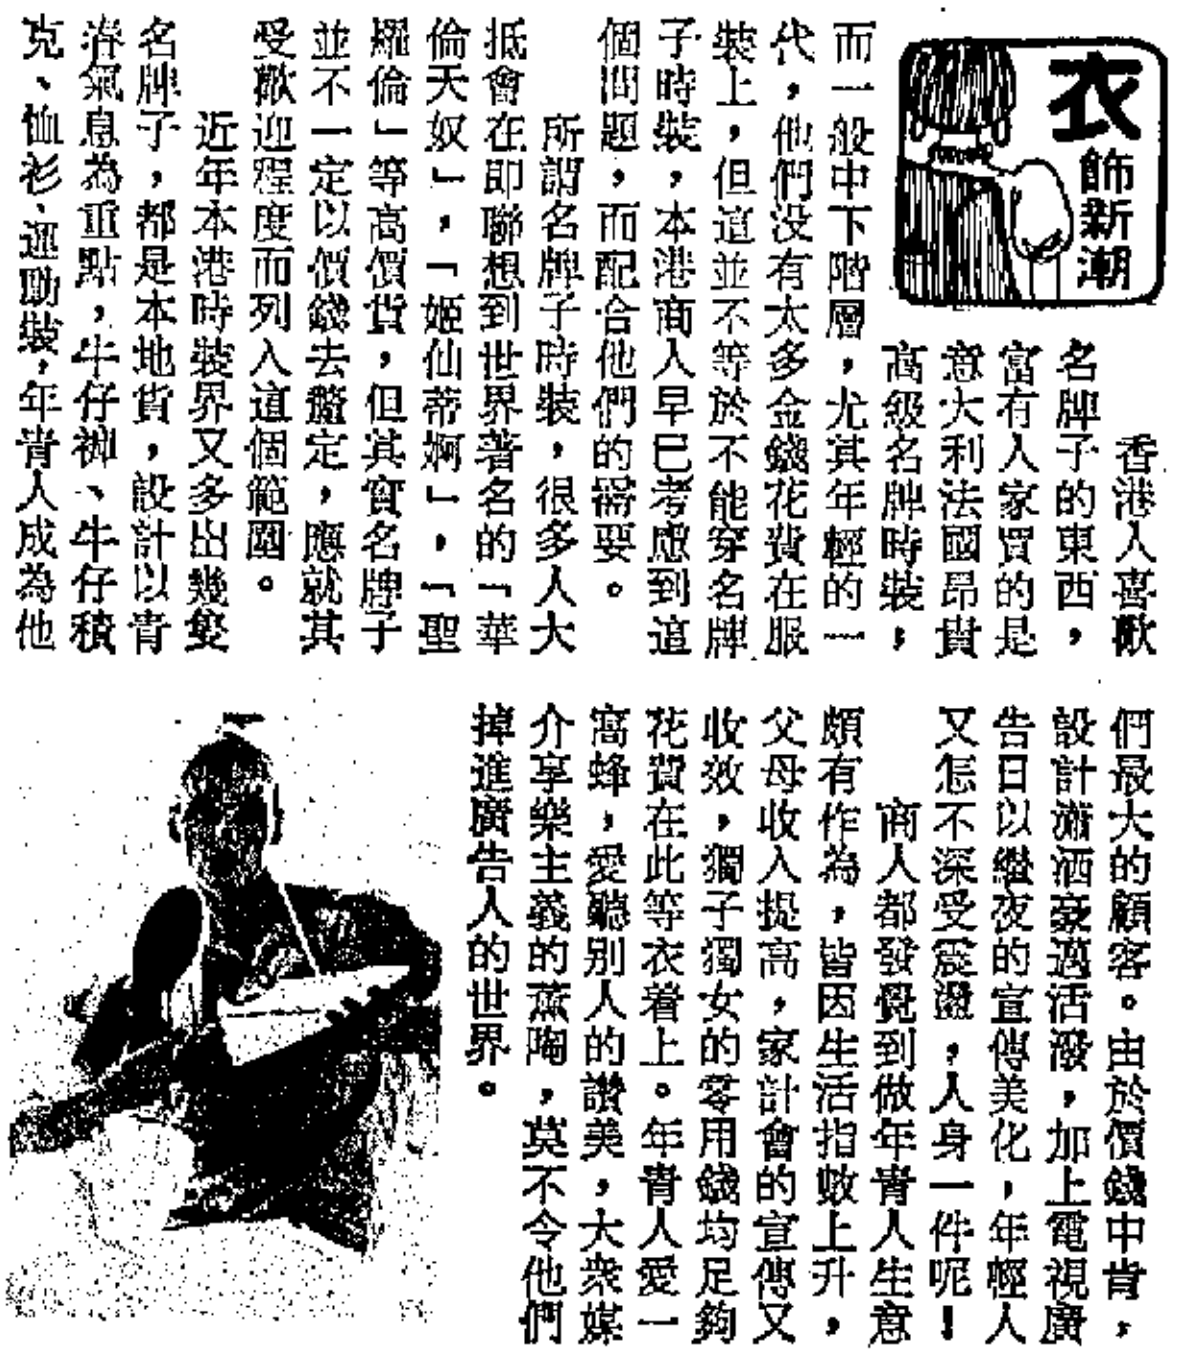 衣
飾新潮
香港人喜歡
名牌子的東西，
富有人家買的是
意大利法國昂貴
高級名牌時裝；
而一般中下階層，尤其年輕的一
代，他們没有太多金錢花費在服
裝上，但這並不等於不能穿名牌
子時裝，本港商人早已考慮到這
個問題，而配合他們的需要。
所謂名牌子時裝，很多人大
抵會在即聯想到世界著名的「華
倫天奴」，「姬仙蒂婀」，「聖
羅倫」等高價貨，但其實名牌子
並不一定以價錢去釐定，應就其
受歡迎程度而列入這個範圍。
近年本港時裝界又多出幾隻
名牌子，都是本地貨，設計以青
春氣息為重點，牛仔褲、牛仔積
克、恤衫、運動裝，年青人成為他
們最大的顧客。由於價錢中肯，
設計瀟洒豪邁活潑，加上電視廣
告日以繼夜的宣傳美化，年輕人
又怎不深受震盪，人身一件呢！
商人都發覺到做年青人生意
頗有作為，皆因生活指數上升，
父母收入提高，家計會的宣傳又
收效，獨子獨女的零用錢均足夠
花費在此等衣着上。年青人愛一
窩蜂，愛聽别人的讚美，大衆媒
介享樂主義的薰陶，莫不令他們
掉進廣告人的世界。